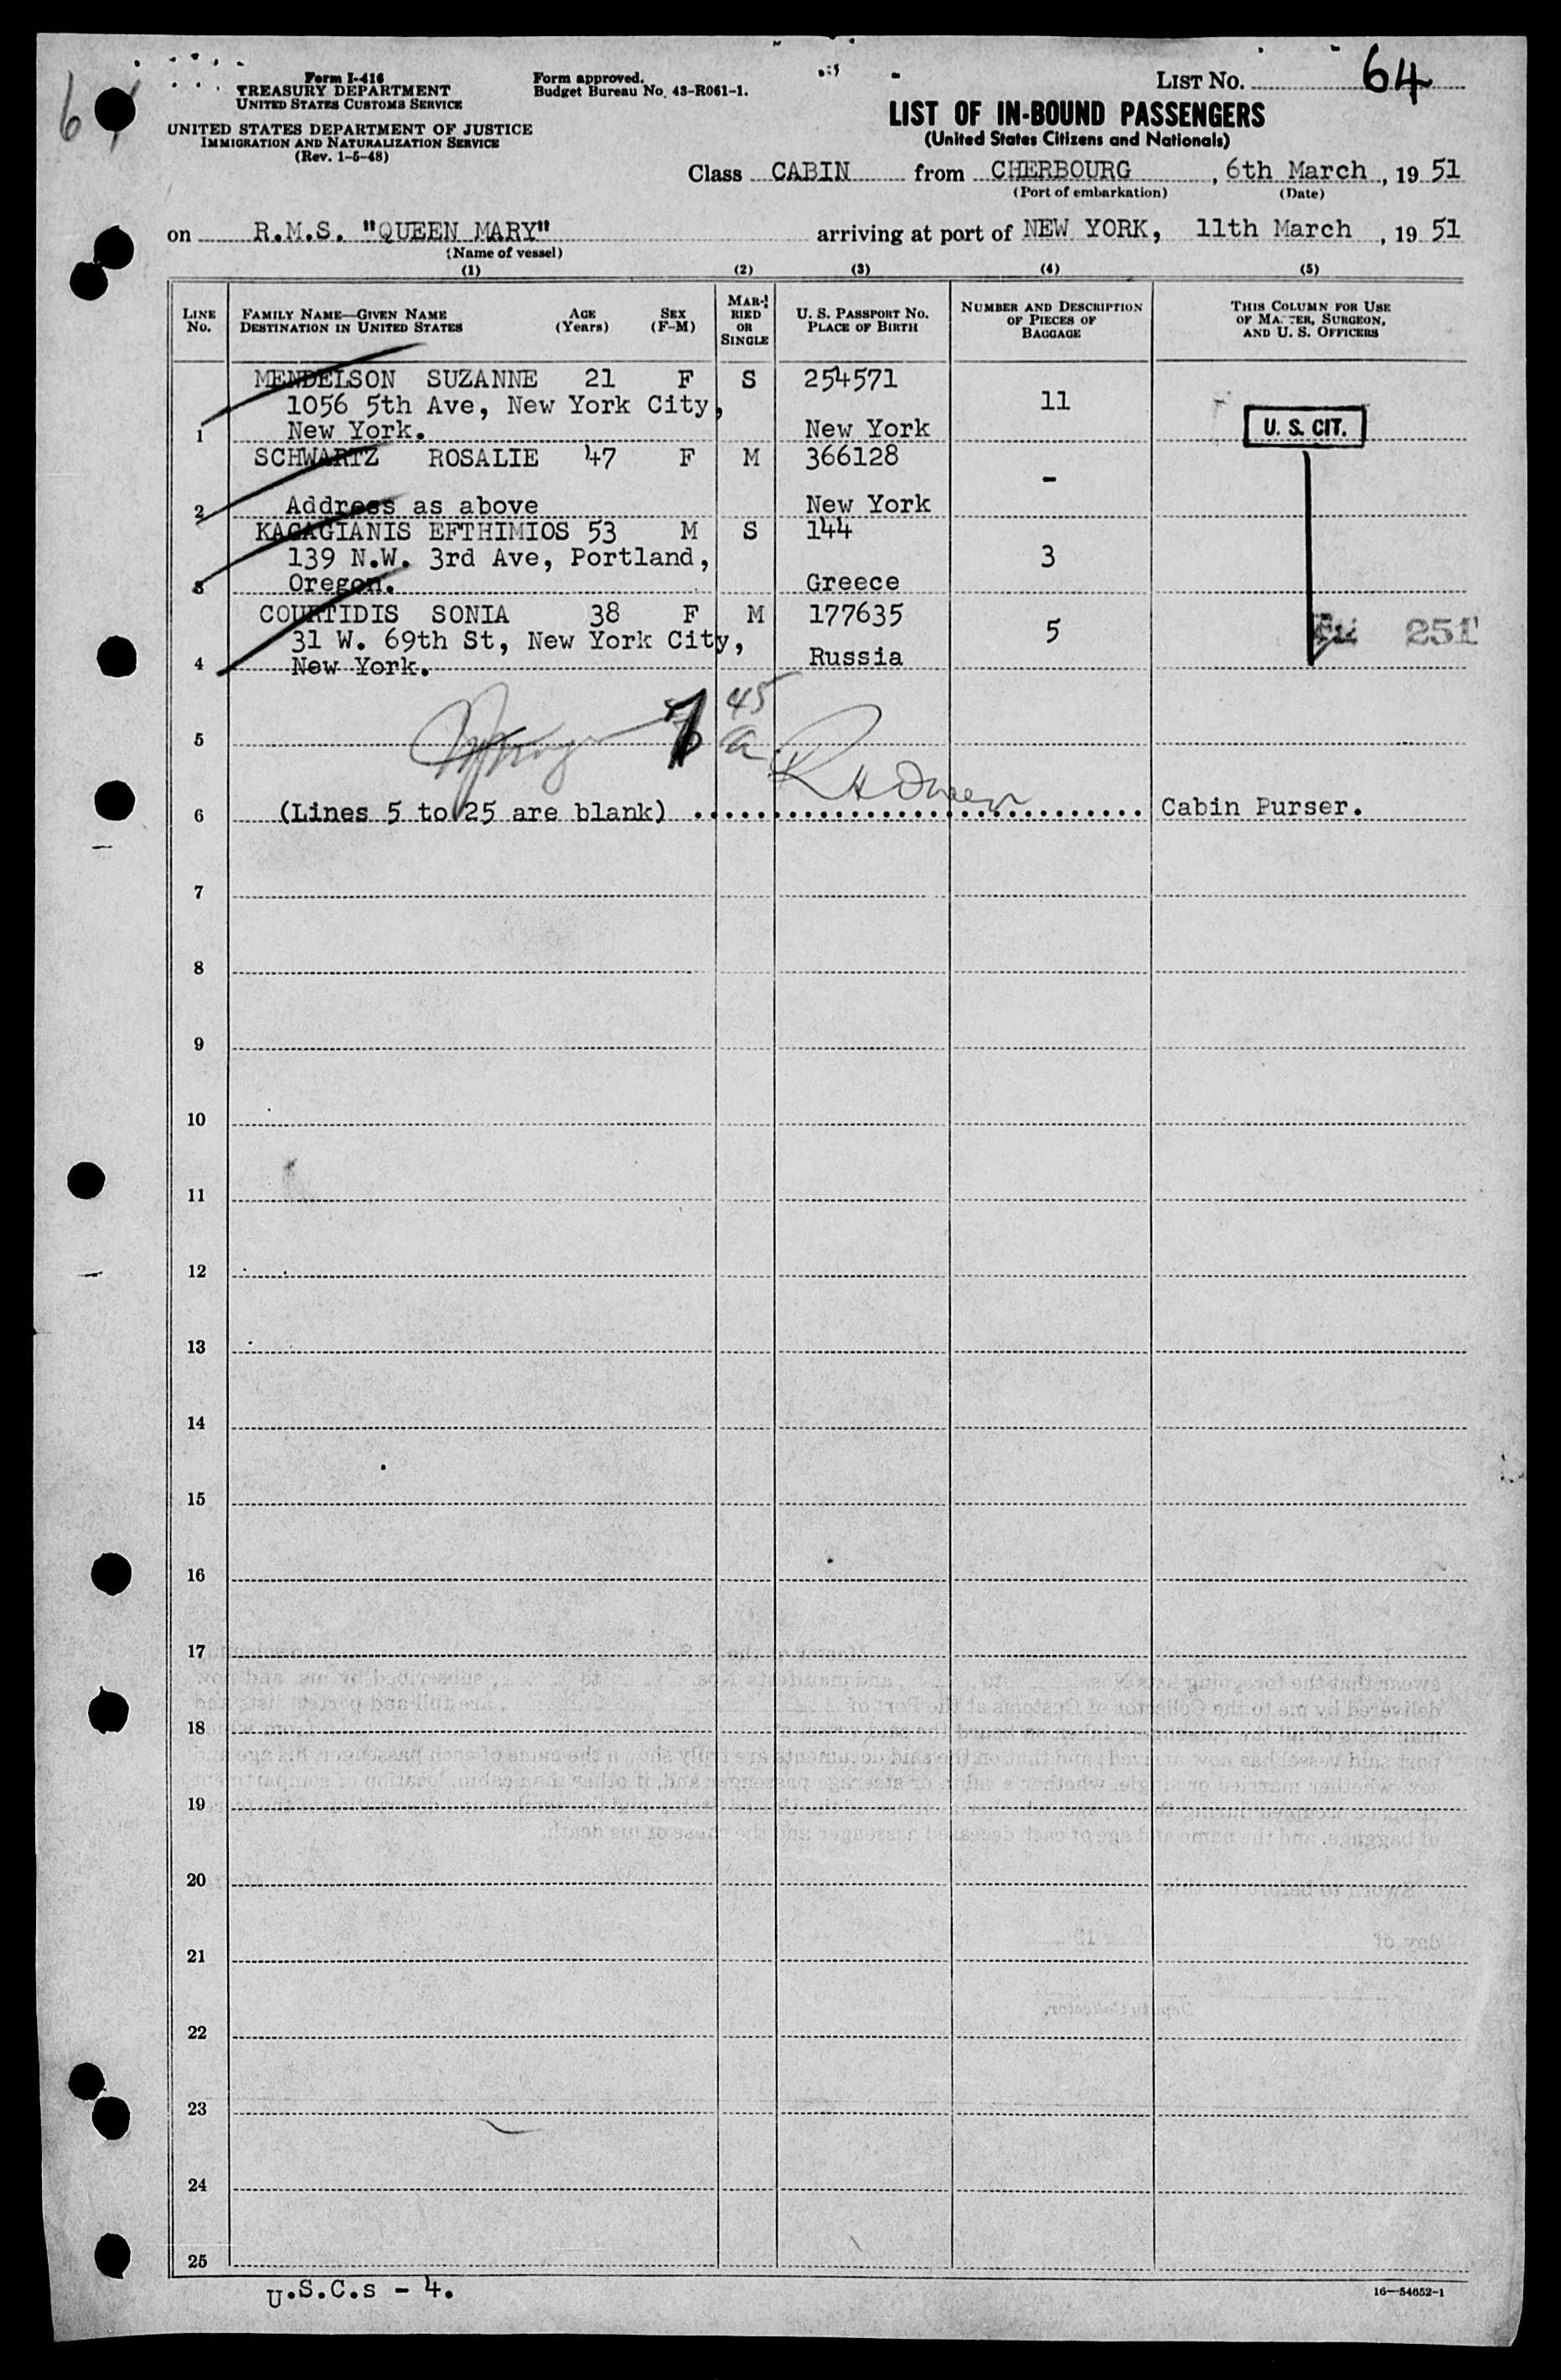 64
Form I-416
TREASURY DEPARTMENT
UNITED STATES CUSTOMS SERVICE
UNITED STATES DEPARTMENT OF JUSTICE
IMMIGRATION AND NATURALIZATION SERVICE
(Rev. 1-5-48)
Form approved.
Budget Bureau No. 43-R061-1.
LIST NO. 64
LIST OF IN-BOUND PASSENGERS
(United States Citizens and Nationals)
Class CABIN from CHERBOURG, 6th March, 19 51
(Port of embarkation) (Date)
on R.M.S. "QUEEN MARY" arriving at port of NEW YORK, 11th March, 19 51
(Name of vessel)
(1) (2) (3) (4) (5)
LINE No. FAMILY NAME—GIVEN NAME DESTINATION IN UNITED STATES AGE (Years) SEX (F-M) MARRIED OR SINGLE U. S. PASSPORT NO. PLACE OF BIRTH NUMBER AND DESCRIPTION OF PIECES OF BAGGAGE THIS COLUMN FOR USE OF MASTER, SURGEON, AND U. S. OFFICERS
MENDELSON SUZANNE 21 F S 254571
1056 5th Ave, New York City, 11
1 New York. New York U. S. CIT.
SCHWARTZ ROSALIE 47 F M 366128
-
2 Address as above New York
KACAGIANIS EFTHIMIOS 53 M S 144
139 N.W. 3rd Ave, Portland, 3
3 Oregon. Greece
COURTIDIS SONIA 38 F M 177635
31 W. 69th St, New York City, 5 251
4 New York. Russia
45
5
6 (Lines 5 to 25 are blank) R H Owen Cabin Purser.
7
8
9
10
11
12
13
14
15
16
17
18
19
20
21
22
23
24
25
U.S.C.s - 4.
16—54652-1